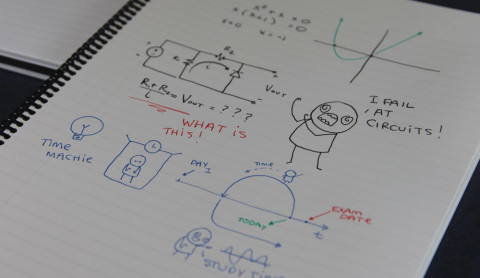 x² + x = 0
x(x+1) = 0
x=0 x=-1
R₂
R₁
L
VOUT
R₁+R₂ = VOUT = ???
L
WHAT IS
THIS!
I FAIL
AT
CIRCUITS!
TIME
MACHIE
DAY
1
TIME
TODAY
EXAM
DATE
t
STUDY